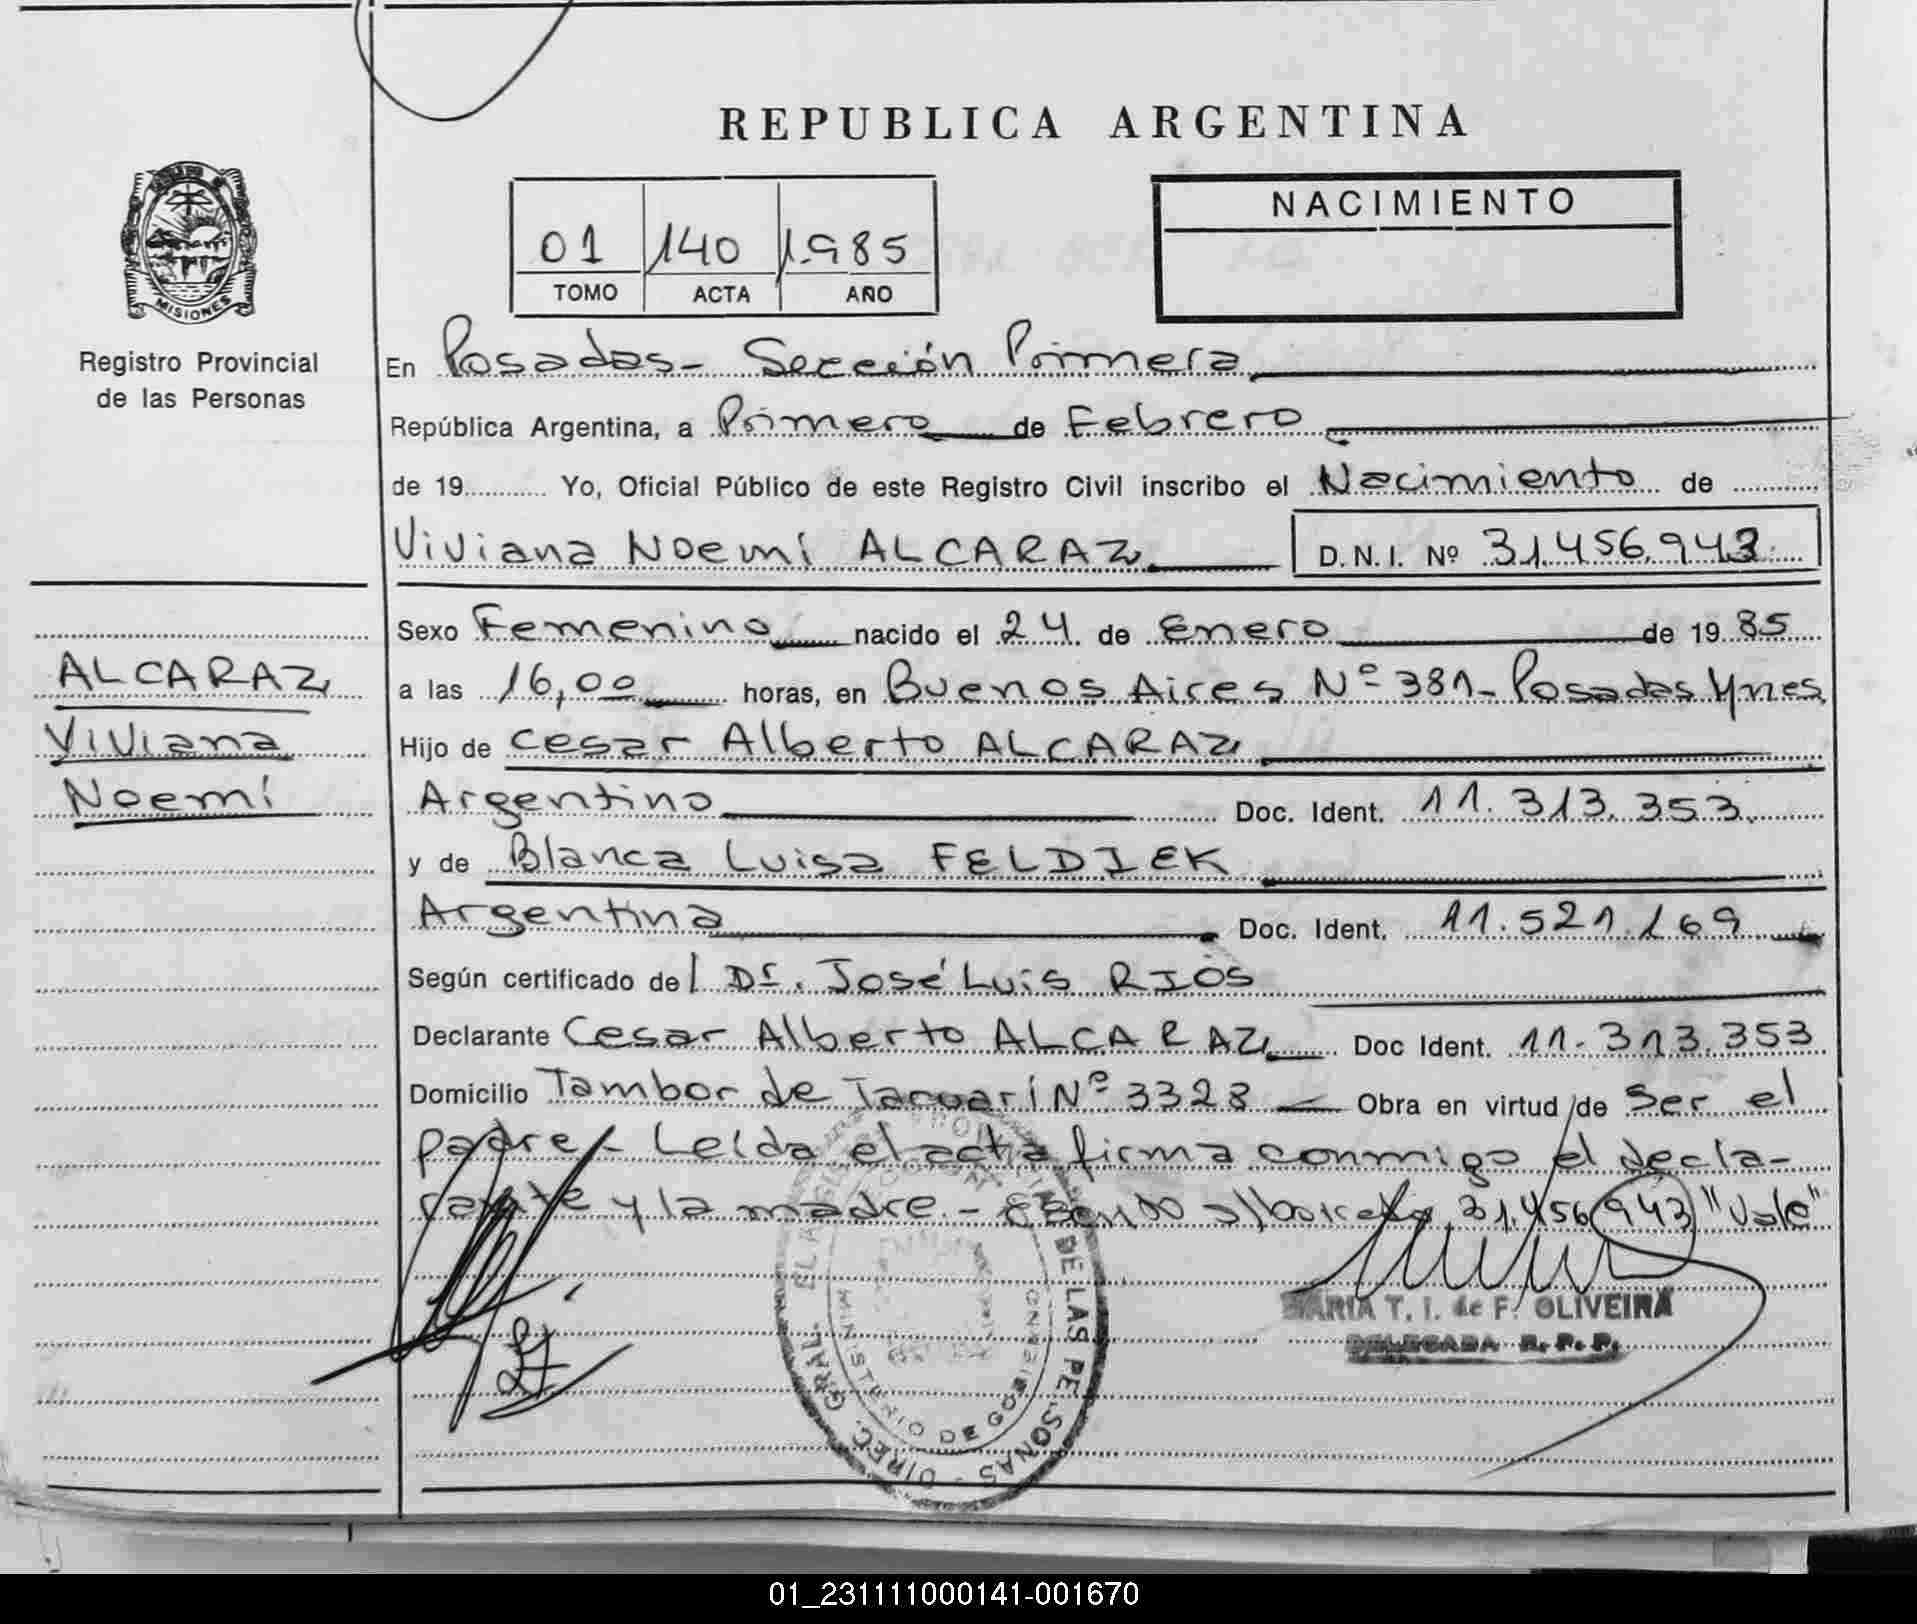 REPUBLICA ARGENTINA
MISIONES
Registro Provincial
de las Personas
01 140 1985
TOMO ACTA AÑO
NACIMIENTO
En Posadas - Sección Primera
República Argentina, a Primero de Febrero
de 19.......... Yo, Oficial Público de este Registro Civil inscribo el Nacimiento de
Viviana Noemí ALCARAZ D.N.I. Nº 31.456.943
Sexo Femenino nacido el 24 de Enero de 1985
a las 16,00 horas, en Buenos Aires Nº 381 - Posadas Mnes
Hijo de Cesar Alberto ALCARAZ
Argentino Doc. Ident. 11.313.353
y de Blanca Luisa FELDIEK
Argentina Doc. Ident. 11.521.169
Según certificado del Dr. José Luis RIOS
Declarante Cesar Alberto ALCARAZ Doc Ident. 11.313.353
Domicilio Tambor de Tacuarí Nº 3328 Obra en virtud de Ser el
padre - Leída el acta firma conmigo el decla-
rante y la madre - 31.456.943 "Vale"
ALCARAZ
Viviana
Noemí
MARIA T. I. de F. OLIVEIRA
DELEGADA R. P. P.
DIREC. GRAL. DE LAS PERSONAS
MINISTERIO DE GOBIERNO
01_231111000141-001670